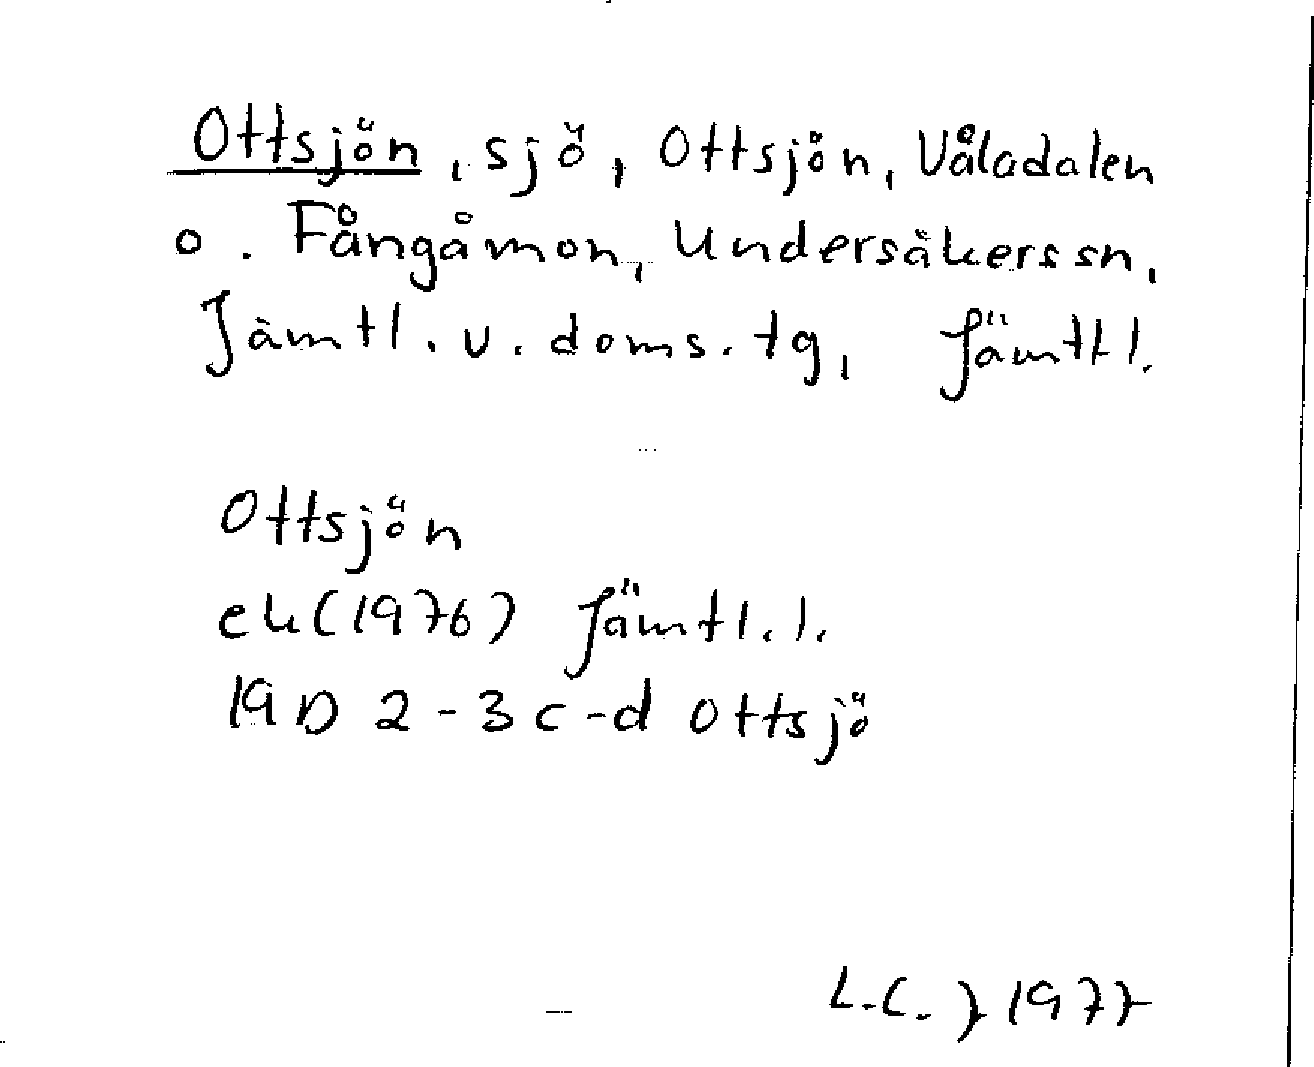 Ottsjön, sjö, Ottsjön, Vålådalen
o. Fångåmon, Undersåkers sn,
Jämtl. v. doms. tg, Jämtl l.
Ottsjön
ek (1976) Jämtl. l.
19D 2-3 c-d Ottsjö
L.C. } 1977